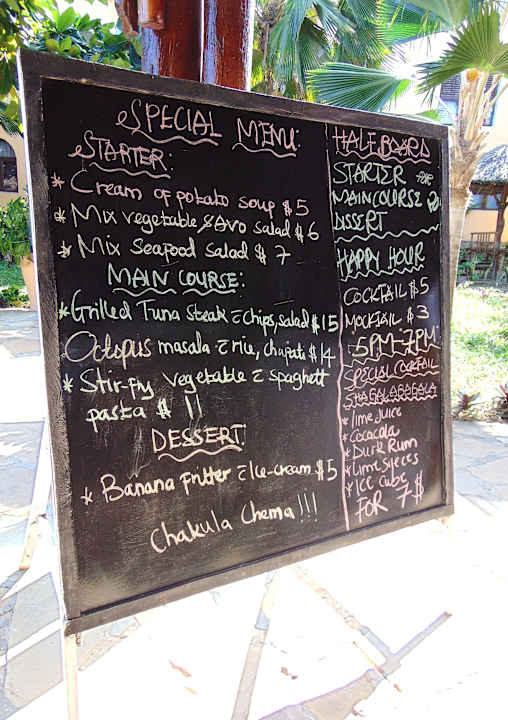 SPECIAL MENU:
STARTER:
* Cream of potato soup $5
* Mix vegetable & Avo salad $6
* Mix Seafood Salad $ 7
MAIN COURSE:
* Grilled Tuna Steak c̄ chips, salad $15
Octopus masala c̄ rice, chapati $14
* Stir-fry vegetable c̄ spaghett
pasta $ 11
DESSERT
* Banana fritter c̄ Ice-cream $5
Chakula Chema !!!
HALF BOARD
STARTER
MAIN COURSE
DISSERT
HAPPY HOUR
COCKTAIL $5
MOCKTAIL $3
5PM-7PM
SPECIAL COCKTAIL
SHAGALABAGALA
* lime Juice
* Cocacola
* Durk Rum
* Lime Slieces
* Ice Cube
FOR 7$